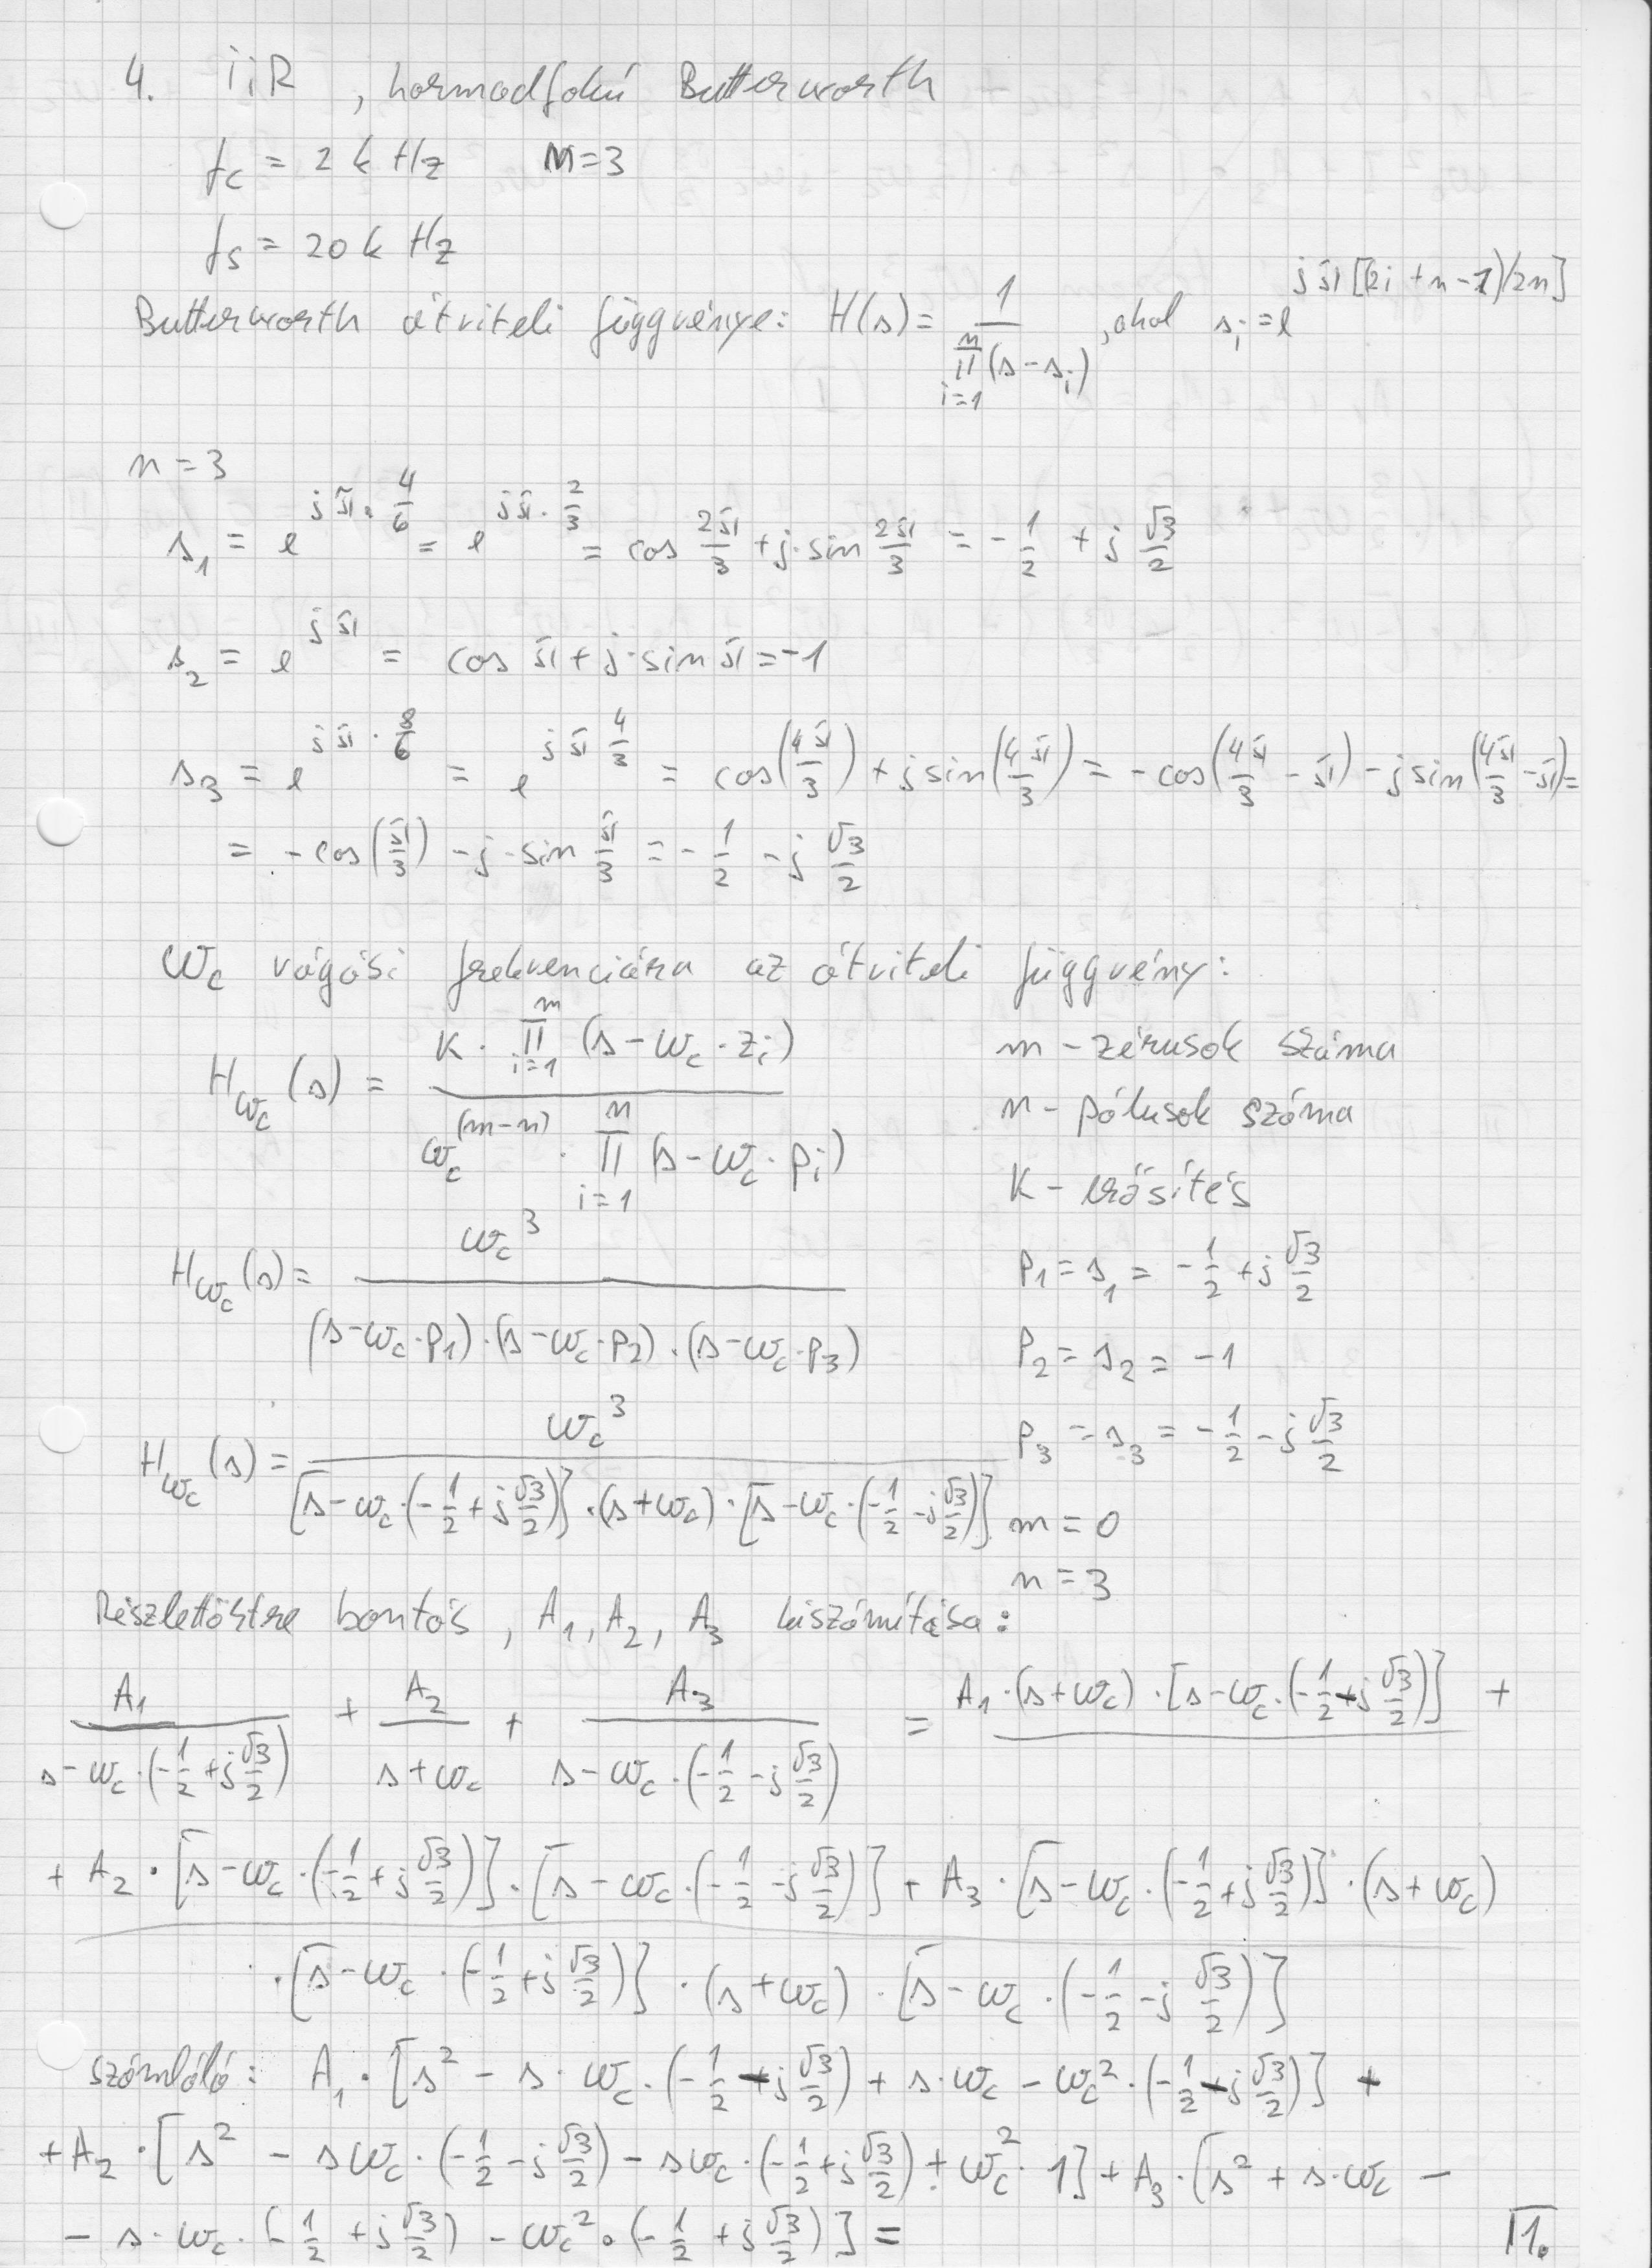 4. IIR , harmadfokú Butterworth
fc = 2 k Hz n=3
fs = 20 k Hz
Butterworth átviteli függvénye: H(s) = 1 / ∏_{i=1}^{n} (s - s_i) , ahol s_i = e^{jπ[(2i + n - 1)/2n]}
n = 3
s_1 = e^{jπ · 4/6} = e^{jπ · 2/3} = cos 2π/3 + j · sin 2π/3 = - 1/2 + j √3/2
s_2 = e^{jπ} = cos π + j · sin π = -1
s_3 = e^{jπ · 8/6} = e^{jπ 4/3} = cos(4π/3) + j sin(4π/3) = - cos(4π/3 - π) - j sin(4π/3 - π) =
= - cos(π/3) - j · sin π/3 = - 1/2 - j √3/2
ω_c vágási frekvenciára az átviteli függvény:
H_{ω_c}(s) = K · ∏_{i=1}^{m} (s - ω_c · z_i) / ω_c^{(m-n)} · ∏_{i=1}^{n} (s - ω_c · p_i)
m - zérusok száma
n - pólusok száma
K - erősítés
H_{ω_c}(s) = ω_c^3 / (s - ω_c · p_1) · (s - ω_c · p_2) · (s - ω_c · p_3)
p_1 = s_1 = - 1/2 + j √3/2
p_2 = s_2 = -1
p_3 = s_3 = - 1/2 - j √3/2
H_{ω_c}(s) = ω_c^3 / [s - ω_c · (- 1/2 + j √3/2)] · (s + ω_c) · [s - ω_c · (- 1/2 - j √3/2)]
m = 0
n = 3
Részlettörtre bontás, A_1, A_2, A_3 kiszámítása:
A_1 / s - ω_c · (- 1/2 + j √3/2) + A_2 / s + ω_c + A_3 / s - ω_c · (- 1/2 - j √3/2) = A_1 · (s + ω_c) · [s - ω_c · (- 1/2 - j √3/2)] +
+ A_2 · [s - ω_c · (- 1/2 + j √3/2)] · [s - ω_c · (- 1/2 - j √3/2)] + A_3 · [s - ω_c · (- 1/2 + j √3/2)] · (s + ω_c)
· [s - ω_c · (- 1/2 + j √3/2)] · (s + ω_c) · [s - ω_c · (- 1/2 - j √3/2)]
számláló: A_1 · [s^2 - s · ω_c · (- 1/2 - j √3/2) + s · ω_c - ω_c^2 · (- 1/2 - j √3/2)] +
+ A_2 · [s^2 - sω_c · (- 1/2 - j √3/2) - sω_c · (- 1/2 + j √3/2) + ω_c^2 · 1] + A_3 · [s^2 + s · ω_c -
- s · ω_c · (- 1/2 + j √3/2) - ω_c^2 · (- 1/2 + j √3/2)] =